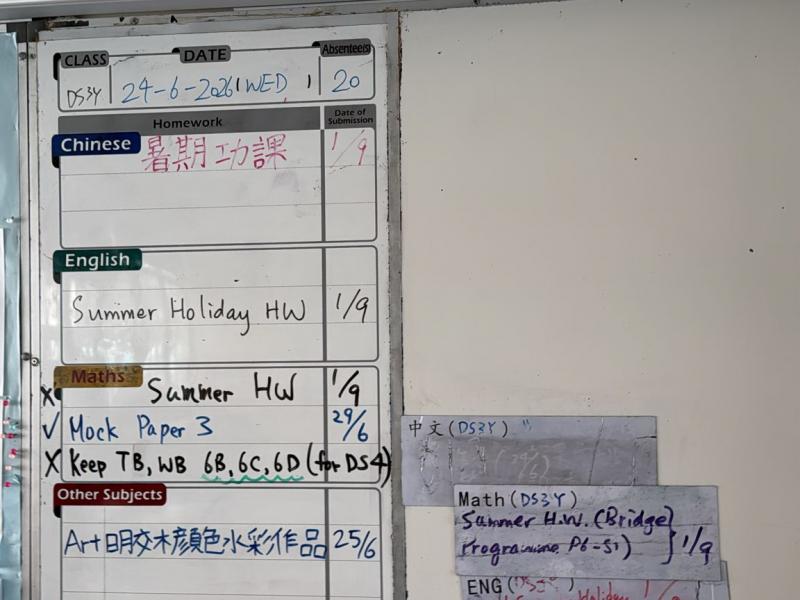 CLASS DATE Absentee(s)
DS3Y 24-6-2026 (WED) 20
Homework Date of Submission
Chinese 暑期功課 1/9
English
Summer Holiday HW 1/9
Maths
X Summer HW 1/9
✓ Mock Paper 3 29/6
X Keep TB, WB 6B, 6C, 6D (for DS4)
Other Subjects
Art 明交木顏色水彩作品 25/6
中文(DS3Y)
Math(DS3Y)
Summer H.W. (Bridge
Programme P6-S1) 1/9
ENG(DS3Y)
Holiday 1/9